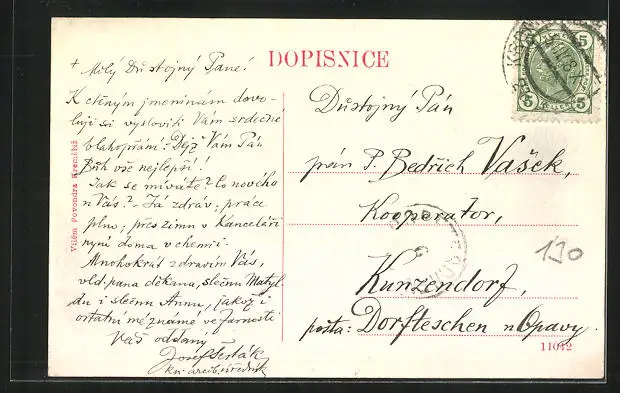 DOPISNICE
+ Milý Důstojný Pane!
K ctěným jmeninám dovo-
luji si vysloviti Vám srdečné
blahopřání: Dejž Vám Pán
Bůh vše nejlepší!!
Jak se míváte? Co nového
u Vás? - Já zdráv; práce
plno; přes zimu v Kanceláři
nyní doma v chemii.
Mnohokrát zdravím Vás,
vld. pana děkana, slečnu Matyl-
du i slečnu Annu, jakož i
ostatní mé známé ve farnosti
Váš oddaný
Josef Šesták
kn. arcib. úředník
Vilém Povondra Kroměříž
Důstojný Pán
pán P. Bedřich Vašek,
Kooperator,
Kunzendorf,
pošta: Dorfteschen u Opavy.
130
11012
5 5
5 5